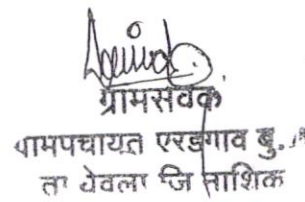 ग्रामसेवक
ग्रामपंचायत एरंडगाव बु.
ता येवला जि नाशिक